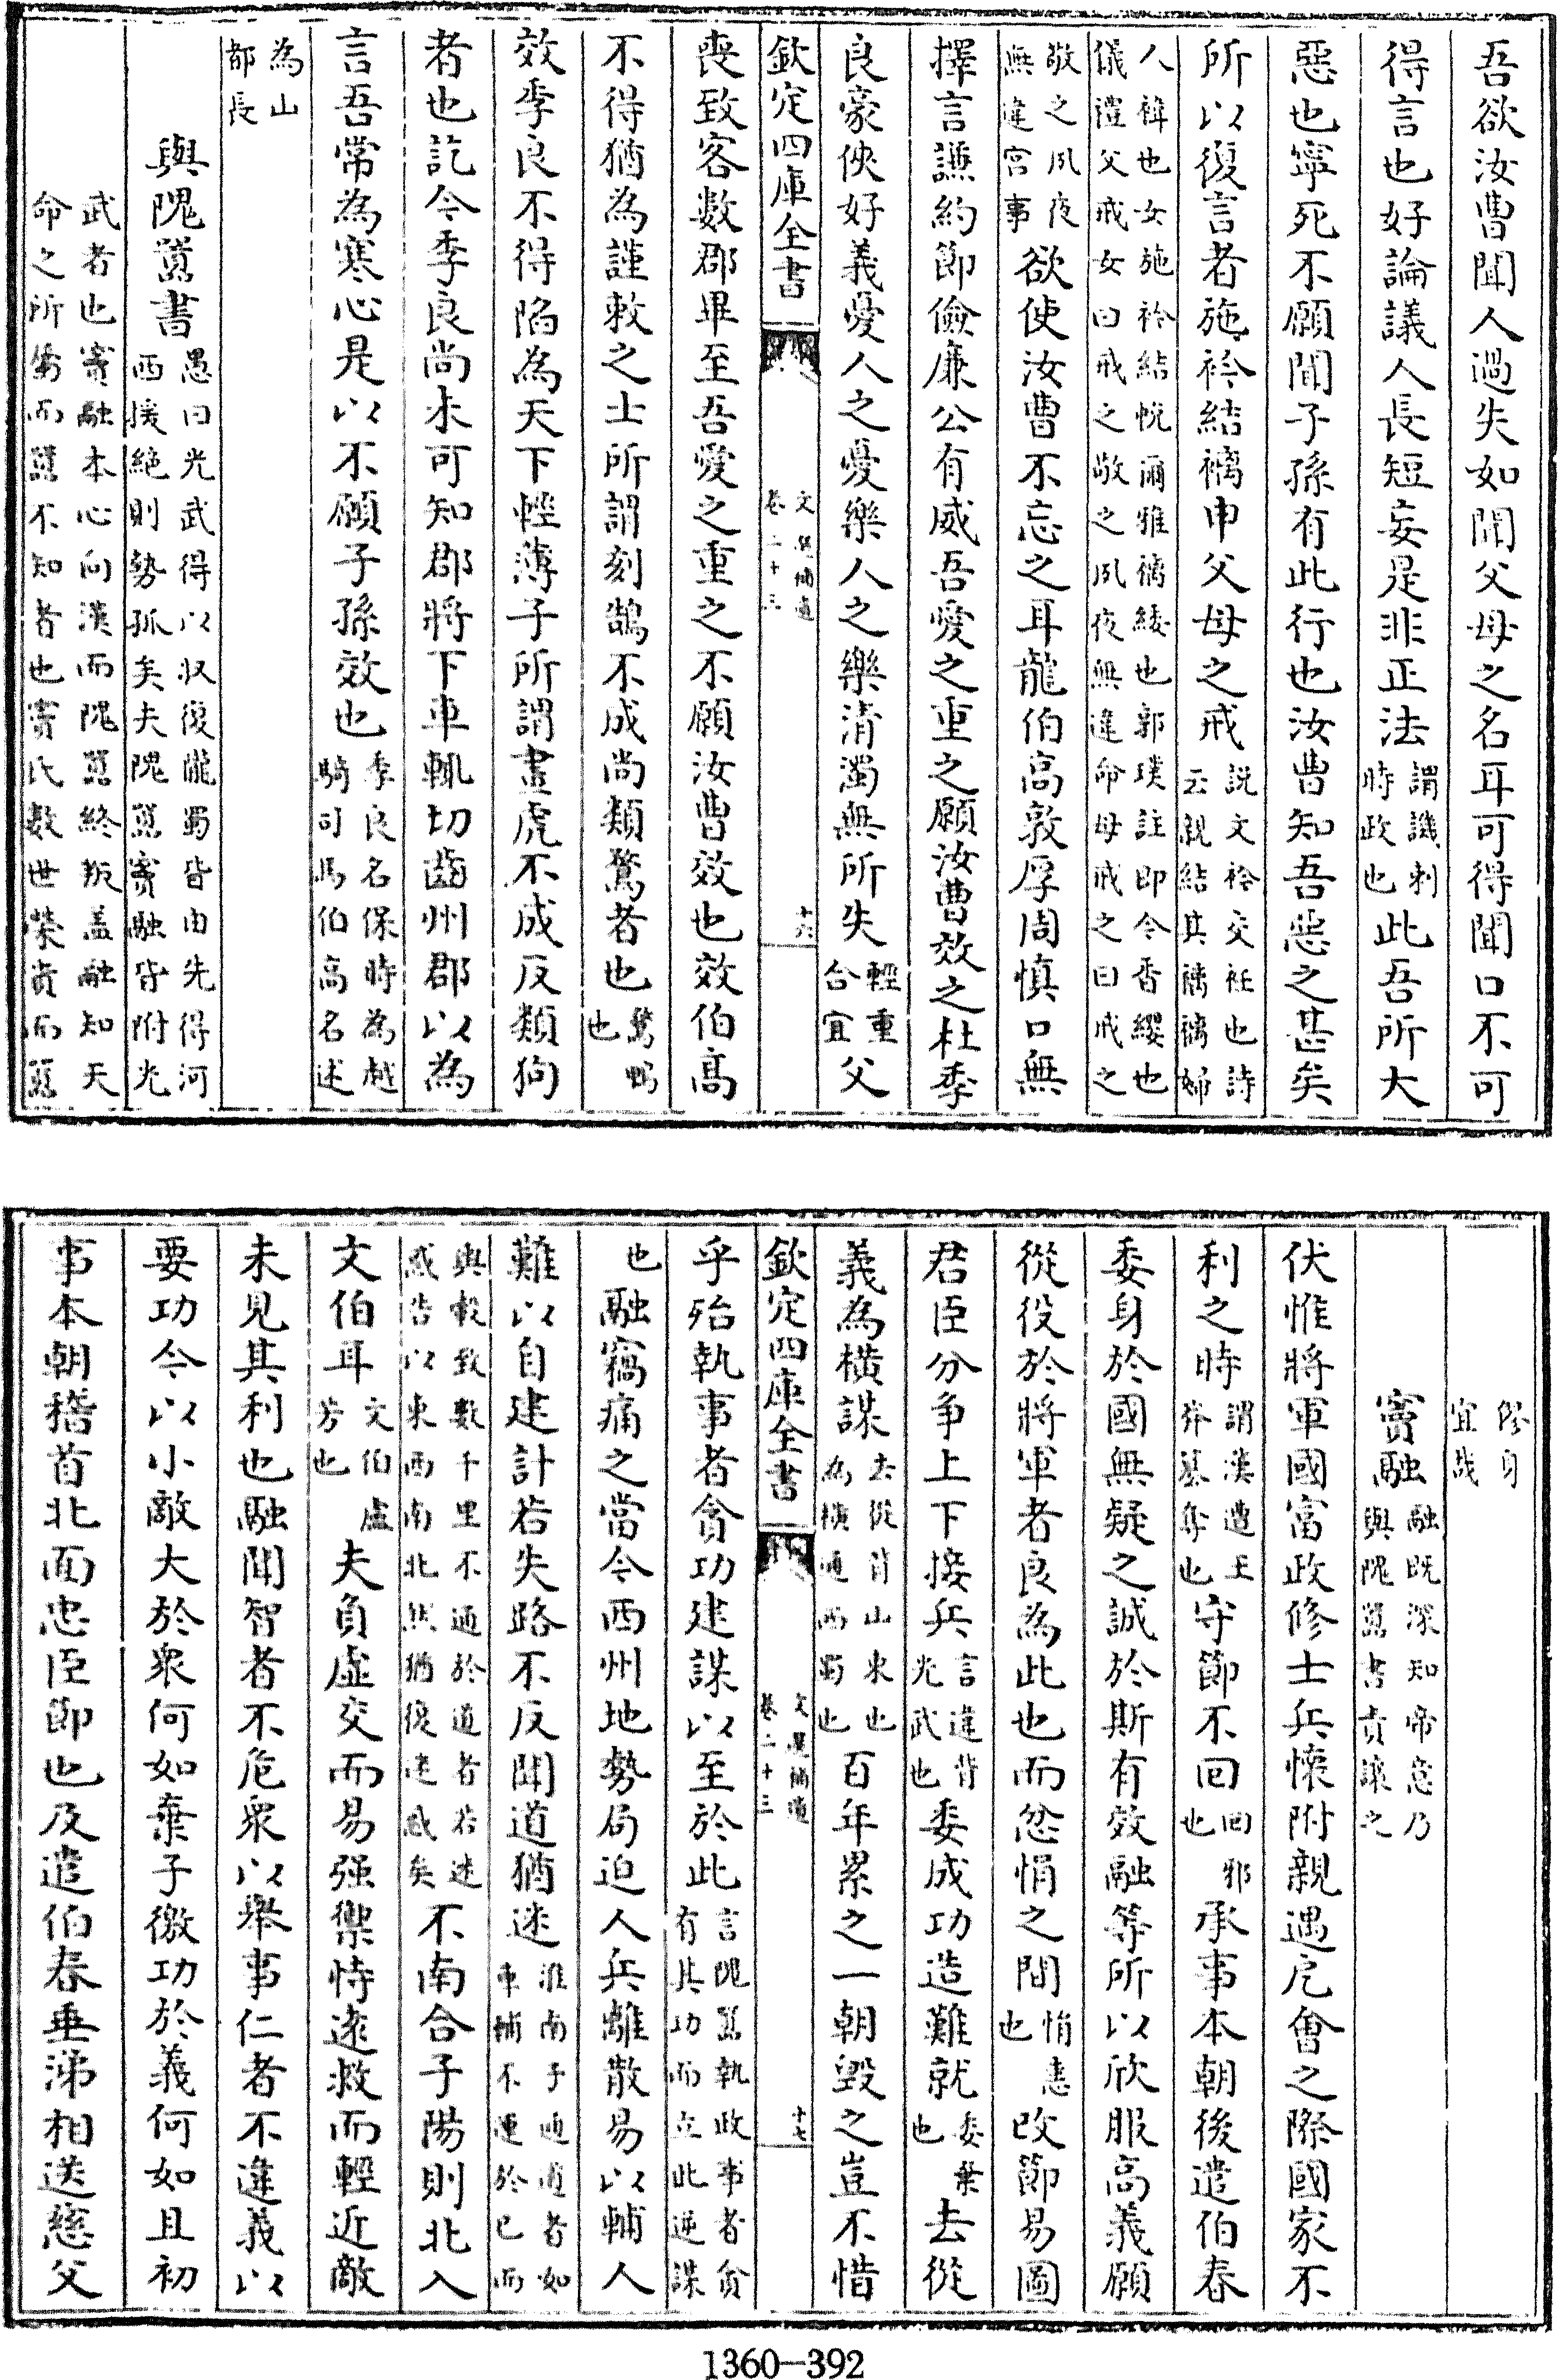 吾欲汝曹聞人過失如聞父母之名耳可得聞口不可
得言也好論議人長短妄是非正法謂譏刺時政也此吾所大
惡也寧死不願聞子孫有此行也汝曹知吾惡之甚矣
所以復言者施衿結褵申父母之戒説文衿交衽也詩云親結其褵褵婦
人褘也女施衿結帨爾雅褵緌也郭璞註即今香纓也儀禮父戒女曰戒之敬之夙夜無違命母戒之曰戒之
敬之夙夜無違宫事欲使汝曹不忘之耳龍伯高敦厚周慎口無
擇言謙約節儉廉公有威吾愛之重之願汝曹效之杜季
良豪俠好義憂人之憂樂人之樂清濁無所失輕重合宜父
欽定四庫全書 文選補遺卷二十三 十六
喪致客數郡畢至吾愛之重之不願汝曹效也效伯高
不得猶為謹敕之士所謂刻鵠不成尚類鶩者也鶩鴨也
效季良不得陷為天下輕薄子所謂畫虎不成反類狗
者也訖今季良尚未可知郡將下車輒切齒州郡以為
言吾常為寒心是以不願子孫效也季良名保時為越騎司馬伯高名述
為山都長
與隗囂書愚曰光武得以收復隴蜀皆由先得河西援絶則勢孤矣夫隗囂竇融皆附光
武者也竇融本心向漢而隗囂終叛盖融知天命之所嚮而囂不知者也竇氏數世榮貴而囂
僇身宜哉
竇融融既深知帝意乃與隗囂書責讓之
伏惟將軍國富政修士兵懷附親遇戹會之際國家不
利之時謂漢遭王莽簒奪也守節不回回邪也承事本朝後遣伯春
委身於國無疑之誠於斯有效融等所以欣服高義願
從役於將軍者良為此也而忿悁之間悁恚也改節易圖
君臣分争上下接兵言違背光武也委成功造難就委棄也去從
義為横謀去從背山東也為横通西蜀也百年累之一朝毁之豈不惜
欽定四庫全書 文選補遺卷二十三 十七
乎殆執事者貪功建謀以至於此言隗囂執政事者貪有其功而立此逆謀
也融竊痛之當今西州地勢局迫人兵離散易以輔人
難以自建計若失路不反聞道猶迷淮南子通道者如車輔不運於已而
與轂致數千里不通於道者若迷惑告以東西南北然猶復迷惑矣不南合子陽則北入
文伯耳文伯盧芳也夫負虛交而易强禦恃遠救而輕近敵
未見其利也融聞智者不危衆以舉事仁者不違義以
要功今以小敵大於衆何如棄子徼功於義何如且初
事本朝稽首北面忠臣節也及遣伯春垂涕相送慈父
1360—392